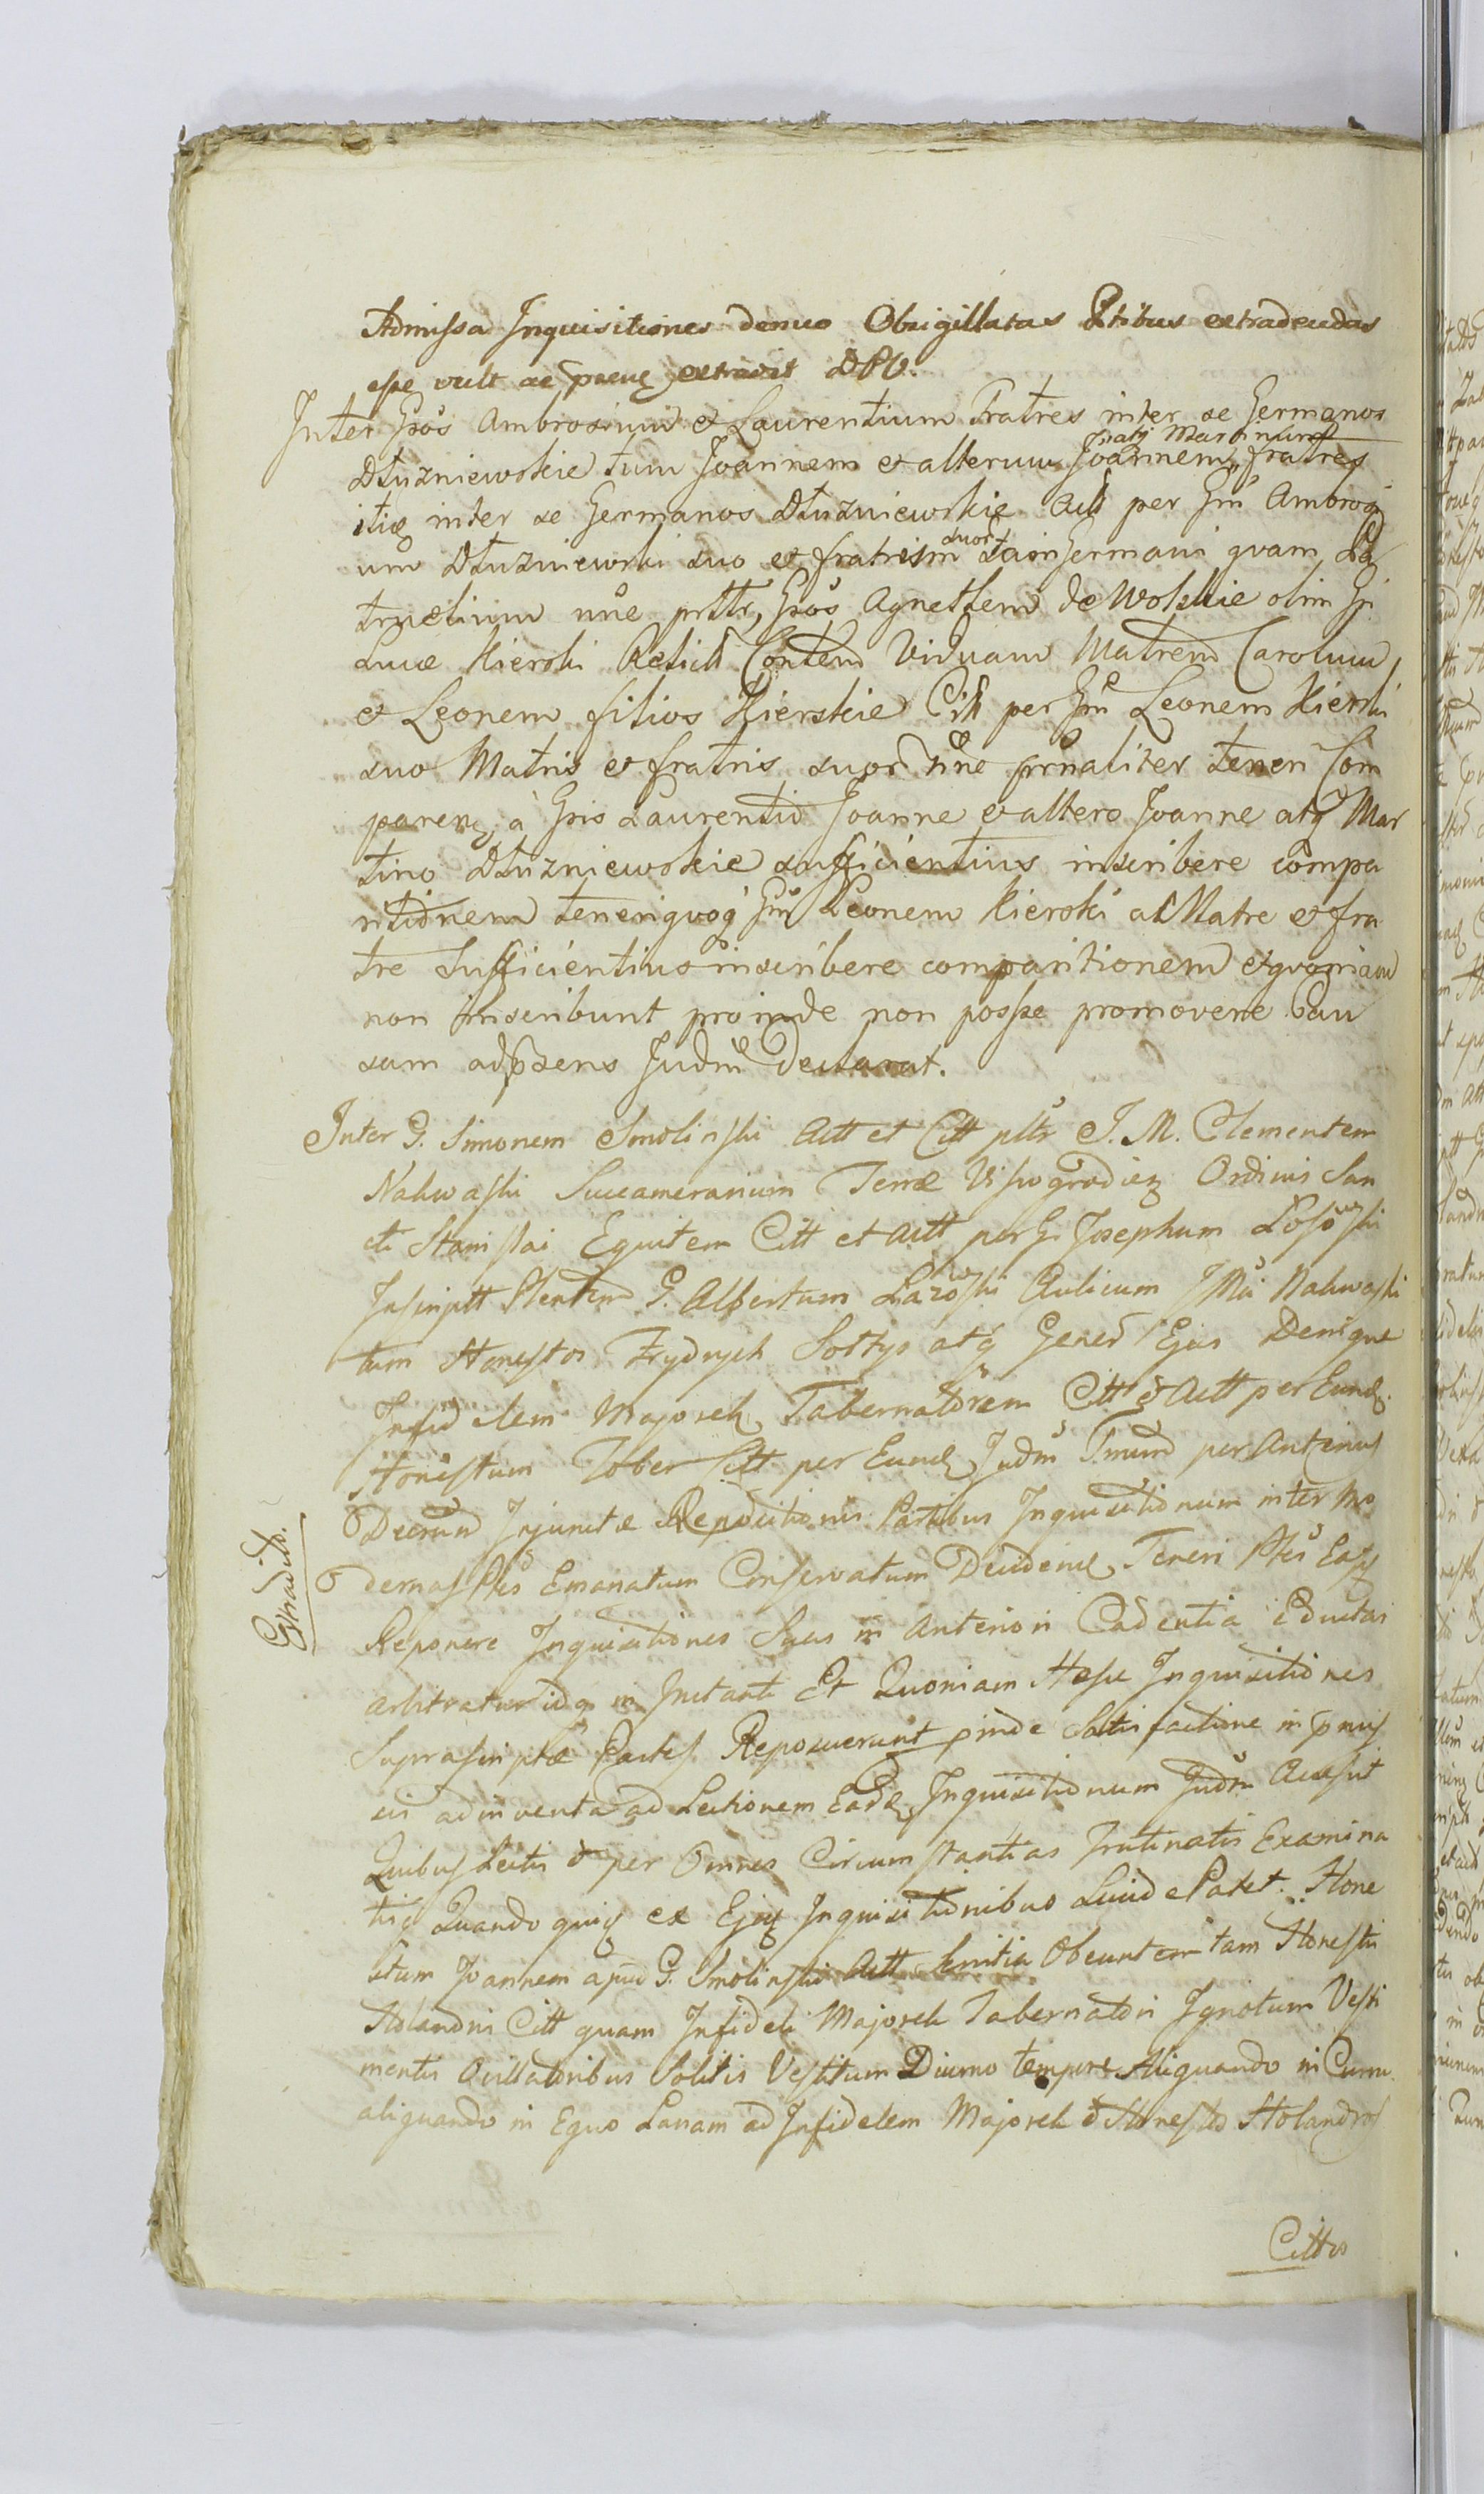 Admissa Inquisitiones denuo Obsigillatas Ptibus extradendas
esse vult ac praeviq extradit DPV.
Inter Gsos Ambrosium et Laurentium Fratres inter se Germanos
atq Martinum
Dłuzniewskie tum Joannem et alterum Joannem fratres
itiq inter se Germanos Dłuzniewskie Act per Gm Ambrosi
suor
um Dłuzniewski suo et fratrum tam Germani quam Pa
truelium nne prttr, Gsos Agnethem de Wolskie olim G
Lucæ Kierski Relict Contem Viduam Matrem Carolum
et Leonem filios Kierskie Citt per Gm Leonem Kierski
suo Matris et fratris suor nne prnaliter teneri Com
paren, à Gsis Laurentio Joanne et altero Joanne atq Mar
tino Dłuzniewskie sufficientius inscribere compa
ritionem teneriquoq Gm Leonem Kierski a Matre et fra
tre Sufficientius inscribere comparitionem et quoniam
non inscribunt proinde non posse promovere Cau
sam ad psens Judm Declarat.
Inter G. Simonem Smolinski Actt et Citt pltr J. M. Clementem
Nakwaski Succamerarium Terræ Vissogrodien Ordinis San
cti Stanislai Equitem Citt et Actt per G. Josephum Losowski
Inscriptt Plentem G. Albertum Lazowski Aulicum JMci Nakwaski
tum Honestos Frydrych Sołtys atq Gener Ejus Denique
Infidelem Majorek Tabernatorem Citt & Actt per Eund.
Honestum Tober Citt per Eund Judm Tmum per Anterius
Decretum Injunctæ Repositionis Partibus Inquisitionum inter Mo
dernas Ptes Emanatum Conservatum Decidend Teneri Ptes Easq
Reponere Inquisitiones Suas in Anteriori Cadentia Eductas
arbitratur idq in Instanti Et Quoniam Hasce Inquisitiones
Suprascriptæ Partes Reposuerunt pinde Satisfactione in pmis
sis adinventa ad Lectionem Eard Inquisitionum Judm Accessit
Quibus Lectis & per Omnes Circumstantias Trutinatis Examina
tisq Quandoquiq ex Ejq Inquisitionibus Luud Patet. Hone
stum Joannem apud G. Smolinski Actt Servitia Obeuntem tam Honestis
Holandris Citt quam Infideli Majorek Tabernatori Ignotum Vesti
mentis Ovillatoribus Solitis Vestitum Diurno tempore Aliquando in Curru
aliquando in Equo Lanam ad Infidelem Majorek & Honestos Holandros
Cittos
Extradit.